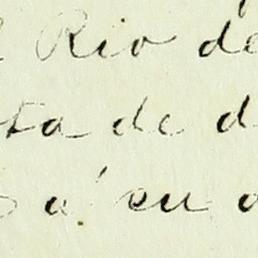 Rio de
ta de d
a' en